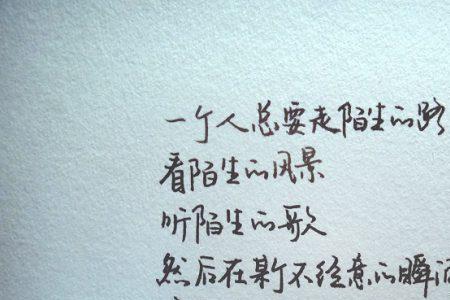 一个人总要走陌生的路
看陌生的风景
听陌生的歌
然后在某个不经意的瞬